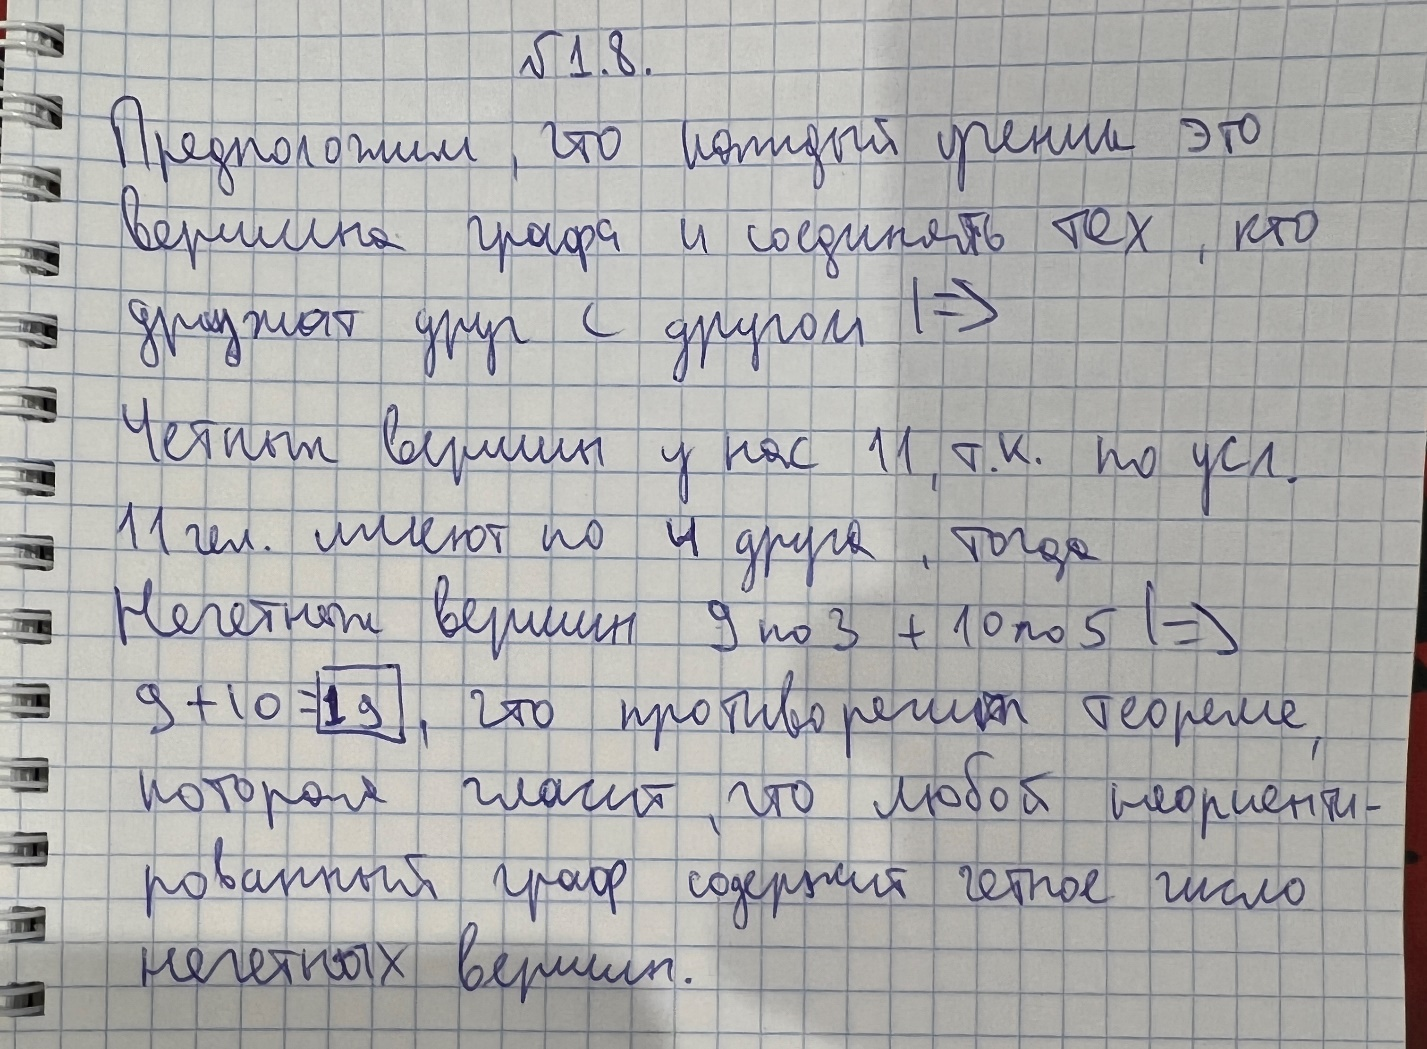 √1.8.
Предположим, что каждый ученик это
вершина графа и соединять тех, кто
дружат друг с другом |=>
Четных вершин у нас 11, т.к. по усл.
11 чел. имеют по 4 друга, тогда
Нечетных вершин 9 по 3 + 10 по 5 |=>
9+10=19, что противоречит теореме,
которая гласит, что любой неориенти-
рованный граф содержит четное число
нечетных вершин.